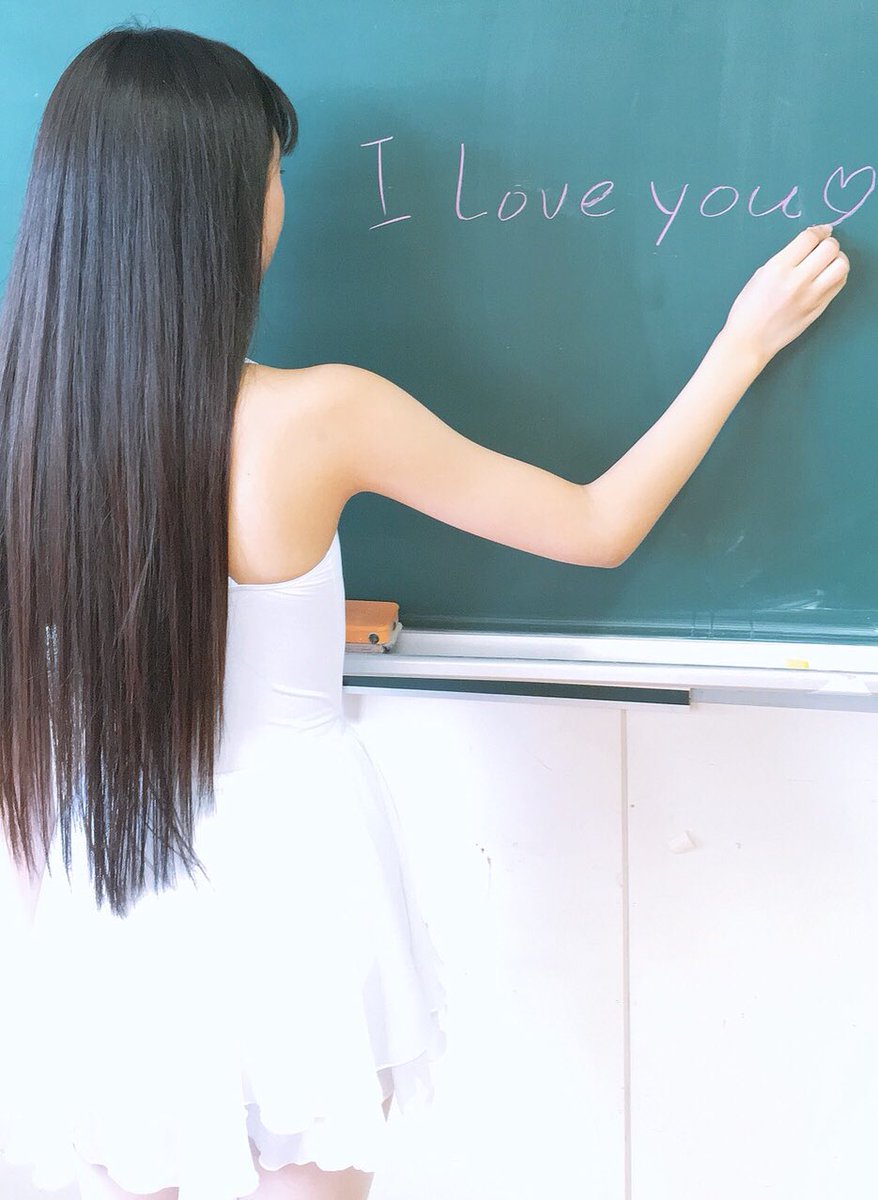 I Love you♡